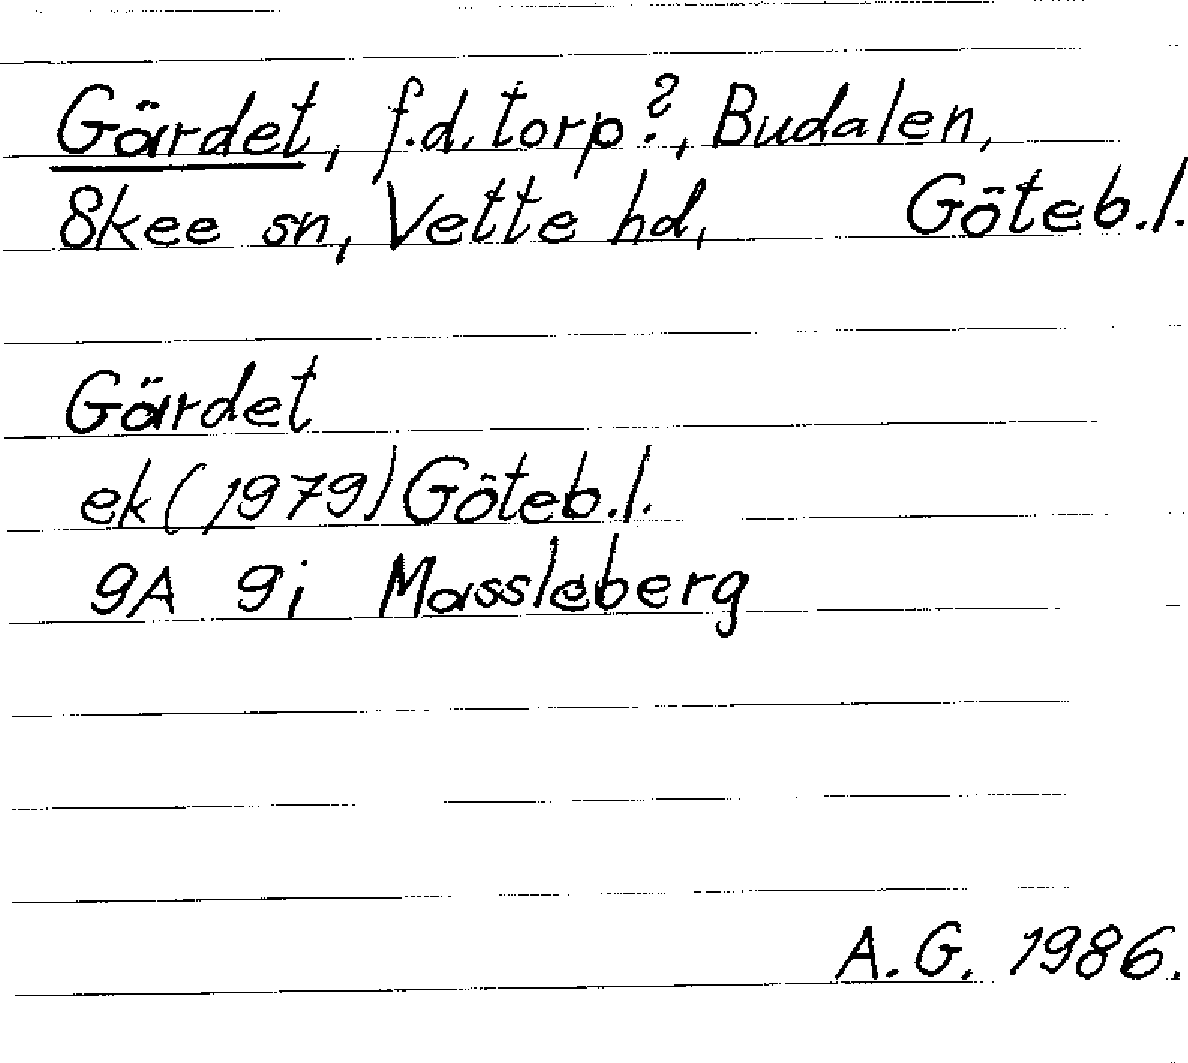 Gärdet, f.d. torp?, Budalen,
Skee sn, Vette hd, Göteb.l.
Gärdet
ek (1979) Göteb.l.
9A 9i Massleberg
A.G. 1986.